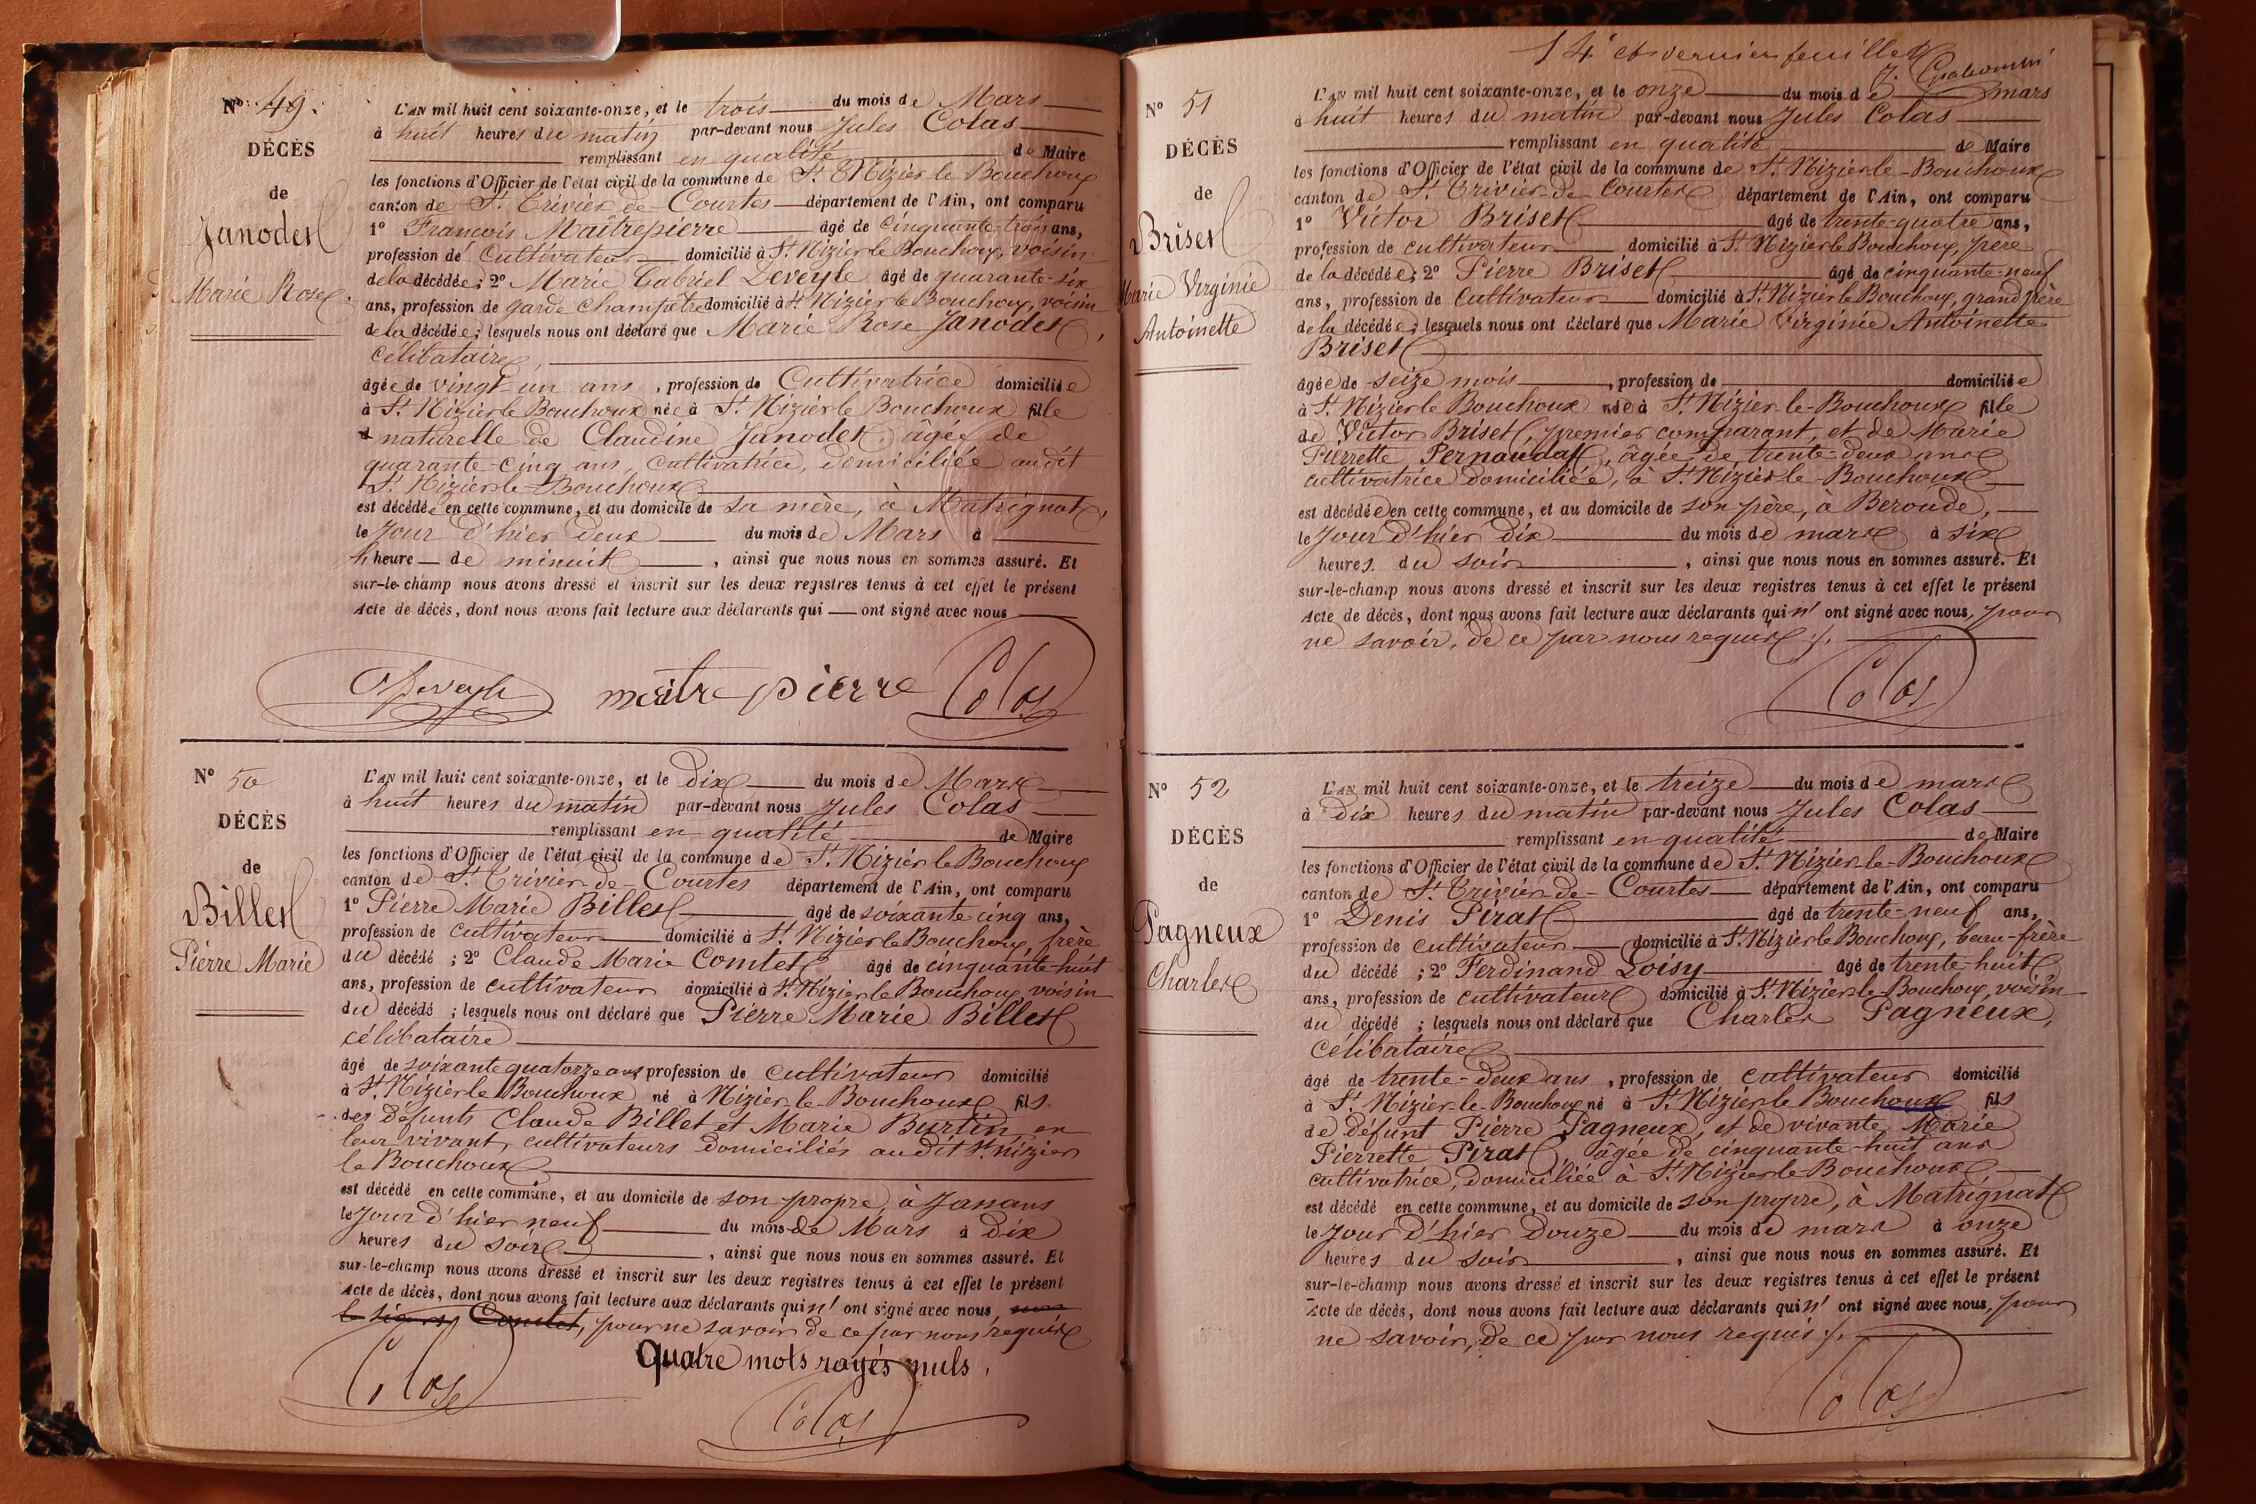 N° 49.
DÉCÈS
de
Janodet
Marie Rose
L'AN mil huit cent soixante-onze, et le trois du mois de Mars
à huit heures du matin par-devant nous Jules Colas
remplissant en qualité de Maire
les fonctions d'Officier de l'état civil de la commune de St Nizier le Bouchoux
canton de St Trivier de Courtes département de l'Ain, ont comparu
1° François Maîtrepierre âgé de cinquante-trois ans,
profession de Cultivateur domicilié à St Nizier le Bouchoux, voisin
de la décédée ; 2° Marie Gabriel Deveyle âgé de quarante-six
ans, profession de garde champêtre domicilié à St Nizier le Bouchoux, voisin
de la décédée ; lesquels nous ont déclaré que Marie Rose Janodet,
célibataire
âgée de vingt-un ans, profession de Cultivatrice domiciliée
à St Nizier le Bouchoux née à St Nizier le Bouchoux fille
naturelle de Claudine Janodet, âgée de
quarante-cinq ans, cultivatrice, domiciliée audit
St Nizier-le-Bouchoux
est décédée en cette commune, et au domicile de sa mère, à Matrignat,
le Jour d'hier deux du mois de Mars à
heure de minuit, ainsi que nous nous en sommes assuré. Et
sur-le-champ nous avons dressé et inscrit sur les deux registres tenus à cet effet le présent
Acte de décès, dont nous avons fait lecture aux déclarants qui ont signé avec nous
Deveyle maître pierre Colas
N° 50
DÉCÈS
de
Billet
Pierre Marie
L'AN mil huit cent soixante-onze, et le dix du mois de Mars
à huit heures du matin par-devant nous Jules Colas
remplissant en qualité de Maire
les fonctions d'Officier de l'état civil de la commune de St Nizier le Bouchoux
canton de St Trivier-de-Courtes département de l'Ain, ont comparu
1° Pierre Marie Billet âgé de soixante cinq ans,
profession de cultivateur domicilié à St Nizier le Bouchoux, frère
du décédé ; 2° Claude Marie Comtet âgé de cinquante-huit
ans, profession de cultivateur domicilié à St Nizier le Bouchoux voisin
du décédé ; lesquels nous ont déclaré que Pierre Marie Billet
célibataire
âgé de soixante quatorze ans, profession de cultivateur domicilié
à St Nizier le Bouchoux né à Nizier-le-Bouchoux fils
des défunts Claude Billet et Marie Burtin en
leur vivant, cultivateurs domiciliés audit St nizier
le Bouchoux
est décédé en cette commune, et au domicile de son propre, à Janans
le Jour d'hier neuf du mois de Mars à dix
heures du soir, ainsi que nous nous en sommes assuré. Et
sur-le-champ nous avons dressé et inscrit sur les deux registres tenus à cet effet le présent
Acte de décès, dont nous avons fait lecture aux déclarants qui n' ont signé avec nous,
Comtet, pour ne savoir de ce par nous requis
Quatre mots rayés nuls.
Colas
Colas
14e et dernier feuillet
N° 51
DÉCÈS
de
Briset
Marie Virginie
Antoinette
L'AN mil huit cent soixante-onze, et le onze du mois de mars
à huit heures du matin par-devant nous Jules Colas
remplissant en qualité de Maire
les fonctions d'Officier de l'état civil de la commune de St Nizier le-Bouchoux
canton de St Trivier-de-Courtes département de l'Ain, ont comparu
1° Victor Briset âgé de trente-quatre ans,
profession de cultivateur domicilié à St Nizier le Bouchoux, père
de la décédée ; 2° Pierre Briset âgé de cinquante-neuf
ans, profession de Cultivateur domicilié à St Nizier le Bouchoux, grand père
de la décédée ; lesquels nous ont déclaré que Marie Virginie Antoinette
Briset
âgée de seize mois, profession de domiciliée
à St Nizier le Bouchoux née à St Nizier-le-Bouchoux fille
de Victor Briset, premier comparant, et de Marie
Pierrette Pernaudat, âgée de trente-deux ans
cultivatrice domiciliée, à St Nizier-le-Bouchoux
est décédée en cette commune, et au domicile de son père, à Beroude,
le Jour d'hier dix du mois de mars à six
heures du soir, ainsi que nous nous en sommes assuré. Et
sur-le-champ nous avons dressé et inscrit sur les deux registres tenus à cet effet le présent
Acte de décès, dont nous avons fait lecture aux déclarants qui n' ont signé avec nous, pour
ne savoir, de ce par nous requis ./.
Colas
N° 52
DÉCÈS
de
Pagneux
Charles
L'AN mil huit cent soixante-onze, et le treize du mois de mars
à dix heures du matin par-devant nous Jules Colas
remplissant en qualité de Maire
les fonctions d'Officier de l'état civil de la commune de St Nizier-le-Bouchoux
canton de St Trivier-de-Courtes département de l'Ain, ont comparu
1° Denis Pirat âgé de trente-neuf ans,
profession de cultivateur domicilié à St Nizier le Bouchoux, beau-frère
du décédé ; 2° Ferdinand Loisy âgé de trente-huit
ans, profession de cultivateur domicilié à St Nizier-le-Bouchoux, voisin
du décédé ; lesquels nous ont déclaré que Charles Pagneux,
célibataire
âgé de trente-deux ans, profession de cultivateur domicilié
à St Nizier-le-Bouchoux né à St Nizier le Bouchoux fils
de défunt Pierre Pagneux, et de vivante Marie
Pierrette Pirat, âgée de cinquante-huit ans
cultivatrice, domiciliée à St Nizier-le-Bouchoux
est décédé en cette commune, et au domicile de son propre, à Matrignat
le Jour d'hier douze du mois de mars à onze
heures du soir, ainsi que nous nous en sommes assuré. Et
sur-le-champ nous avons dressé et inscrit sur les deux registres tenus à cet effet le présent
Acte de décès, dont nous avons fait lecture aux déclarants qui n' ont signé avec nous, pour
ne savoir, de ce par nous requis ./.
Colas